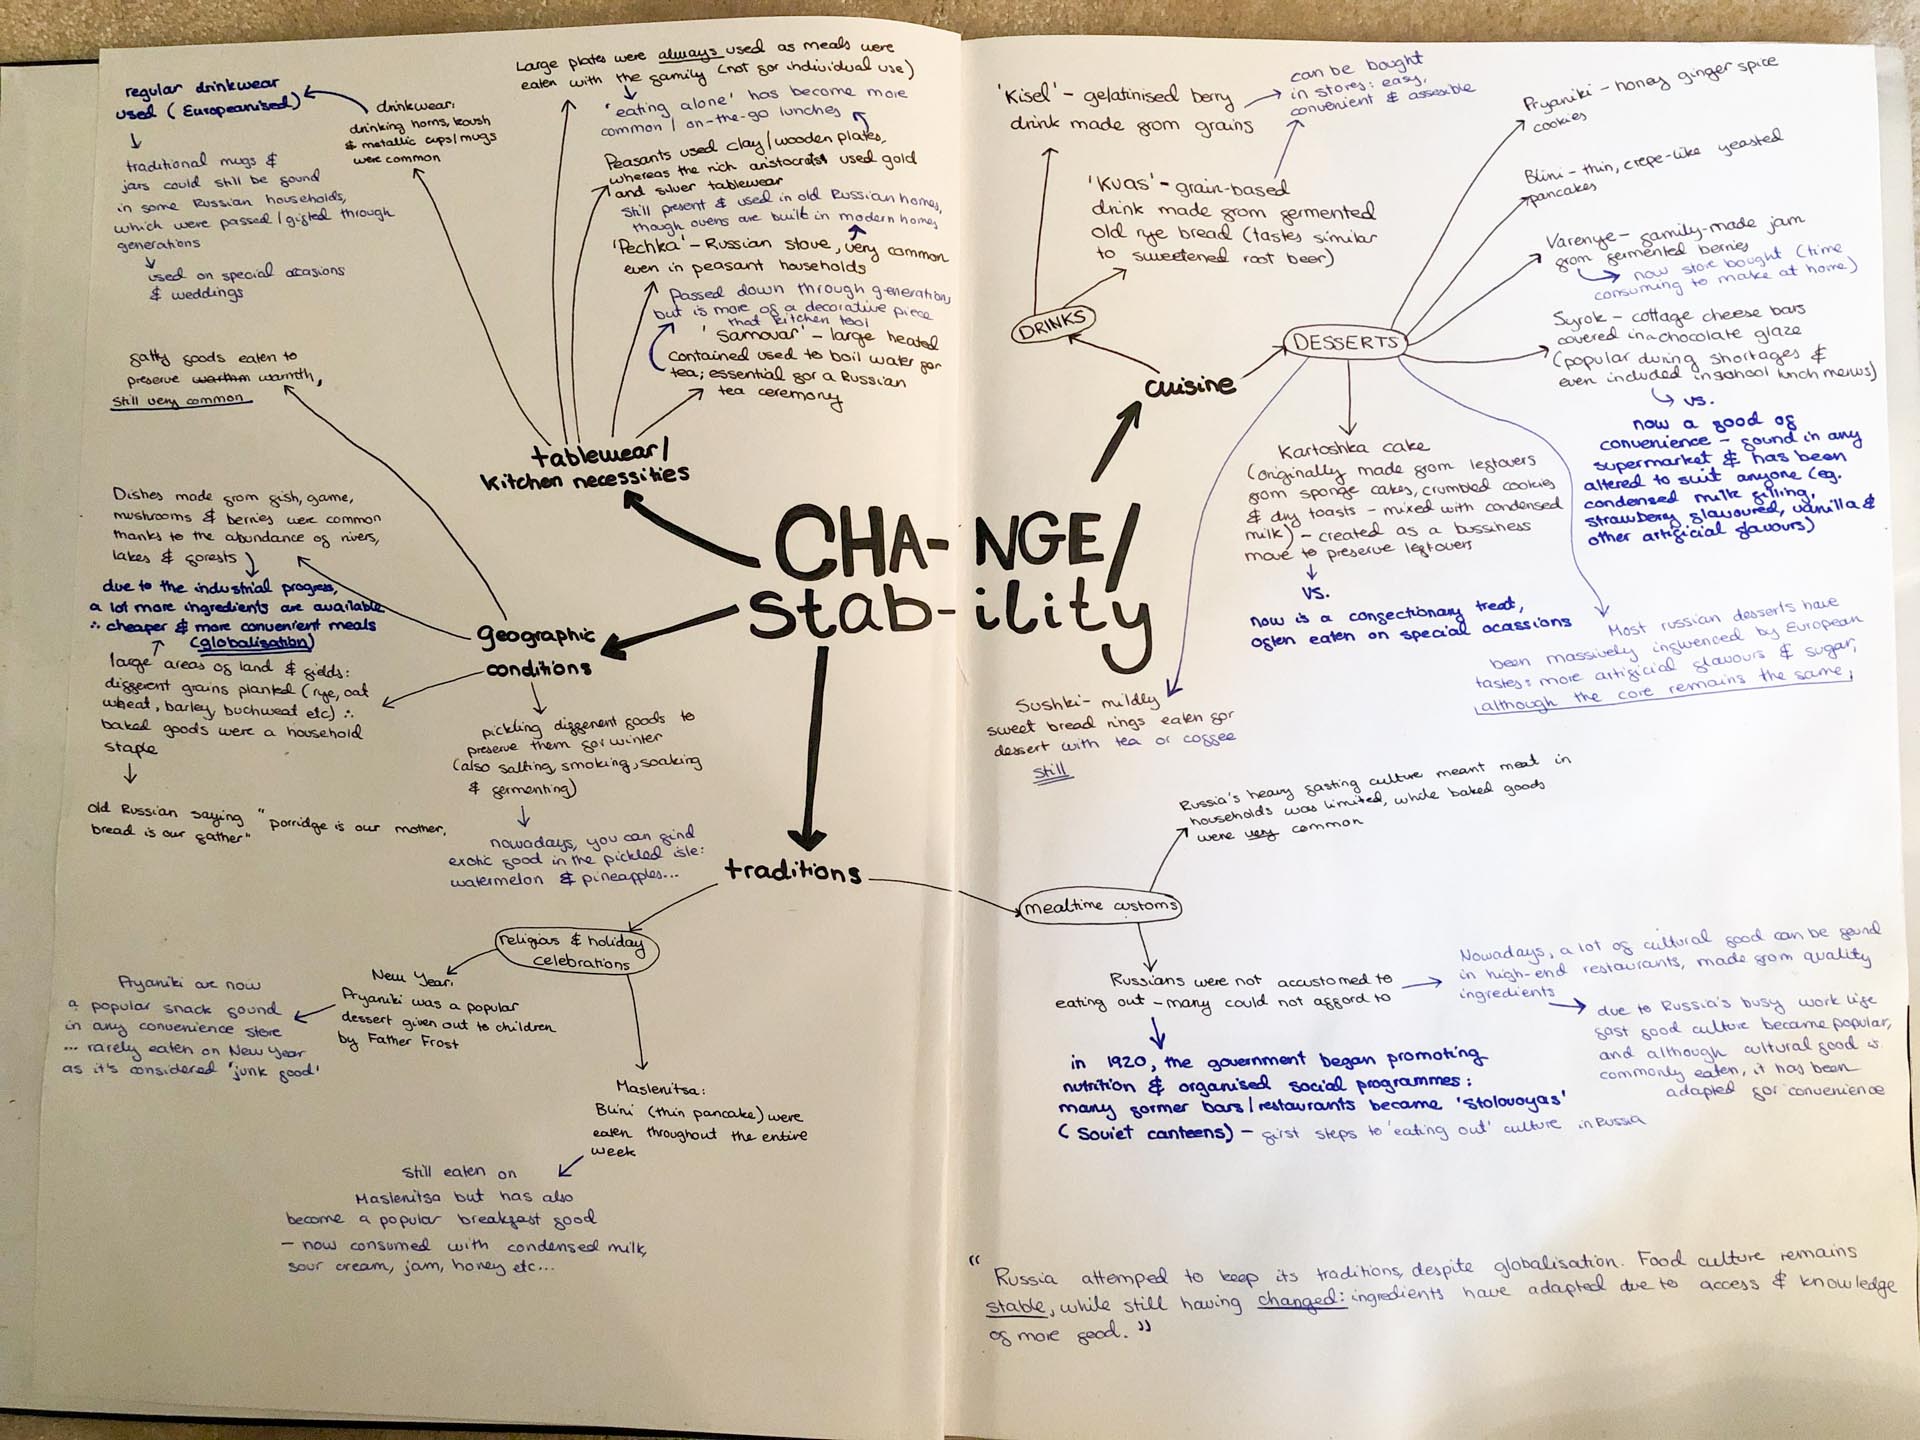 Large plates were always used as meals were
eaten with the family (not for individual use)
'eating alone' has become more
common / on-the-go lunches
Peasants used clay/wooden plates,
whereas the rich aristocrats used gold
and silver tablewear
still present & used in old Russian homes,
though ovens are built in modern homes
'Pechka' - Russian stove, very common
even in peasant households
Passed down through generations,
but is more of a decorative piece
that kitchen tool
'Samovar' - large heated
contained used to boil water for
tea; essential for a Russian
tea ceremony
regular drinkwear
used (Europeanised)
drinkwear:
drinking horns, kovsh
& metallic cups/mugs
were common
traditional mugs &
jars could still be found
in some Russian households,
which were passed / gifted through
generations
used on special occasions
& weddings
tablewear/
kitchen necessities
fatty foods eaten to
preserve warthm warmth,
still very common
Dishes made from fish, game,
mushrooms & berries were common
thanks to the abundance of rivers,
lakes & forests
due to the industrial progress,
a lot more ingredients are available
∴ cheaper & more convenient meals
(globalisation)
large areas of land & fields:
different grains planted (rye, oat
wheat, barley, buchweat etc) ∴
baked goods were a household
staple
old Russian saying "porridge is our mother,
bread is our father"
geographic
conditions
pickling different foods to
preserve them for winter
(also salting, smoking, soaking
& fermenting)
nowadays, you can find
exotic food in the pickled isle:
watermelon & pineapples...
CHA-NGE/
stab-ility
traditions
religious & holiday
celebrations
New Year:
Pryaniki was a popular
dessert given out to children
by Father Frost
Pryaniki are now
a popular snack found
in any convenience store
... rarely eaten on New Year
as it's considered 'junk food'
Maslenitsa:
Blini (thin pancake) were
eaten throughout the entire
week
still eaten on
Maslenitsa but has also
become a popular breakfast food
- now consumed with condensed milk,
sour cream, jam, honey etc...
cuisine
DRINKS
'Kisel' - gelatinised berry
drink made from grains
can be bought
in stores: easy,
convenient & assesible
'Kvas' - grain-based
drink made from fermented
old rye bread (tastes similar
to sweetened root beer)
DESSERTS
Pryaniki - honey ginger spice
cookies
Blini - thin, crepe-like yeasted
pancakes
Varenye - family-made jam
from fermented berries
now store bought (time
consuming to make at home)
Syrok - cottage cheese bars
covered in a chocolate glaze
(popular during shortages &
even included in school lunch menus)
vs.
now a food of
convenience - found in any
supermarket & has been
altered to suit anyone (eg.
condensed milk filling,
strawberry flavoured, vanilla &
other artificial flavours)
Kartoshka cake
(originally made from leftovers
from sponge cakes, crumbled cookies
& dry toasts - mixed with condensed
milk) - created as a bussiness
move to preserve leftovers
vs.
now is a confectionary treat,
often eaten on special ocassions
Most russian desserts have
been massively influenced by European
tastes: more artificial flavours & sugar,
although the core remains the same;
Sushki - mildly
sweet bread rings eaten for
dessert with tea or coffee
still
mealtime customs
Russia's heavy fasting culture meant meat in
households was limited, while baked goods
were very common
Russians were not accustomed to
eating out - many could not afford to
Nowadays, a lot of cultural food can be found
in high-end restaurants, made from quality
ingredients
due to Russia's busy work life
fast food culture became popular,
and although cultural food is
commonly eaten, it has been
adapted for convenience
in 1920, the government began promoting
nutrition & organised social programmes:
many former bars/restaurants became 'stolovoyas'
(Soviet canteens) - first steps to 'eating out' culture in Russia
"Russia attemped to keep its traditions, despite globalisation. Food culture remains
stable, while still having changed: ingredients have adapted due to access & knowledge
of more food."